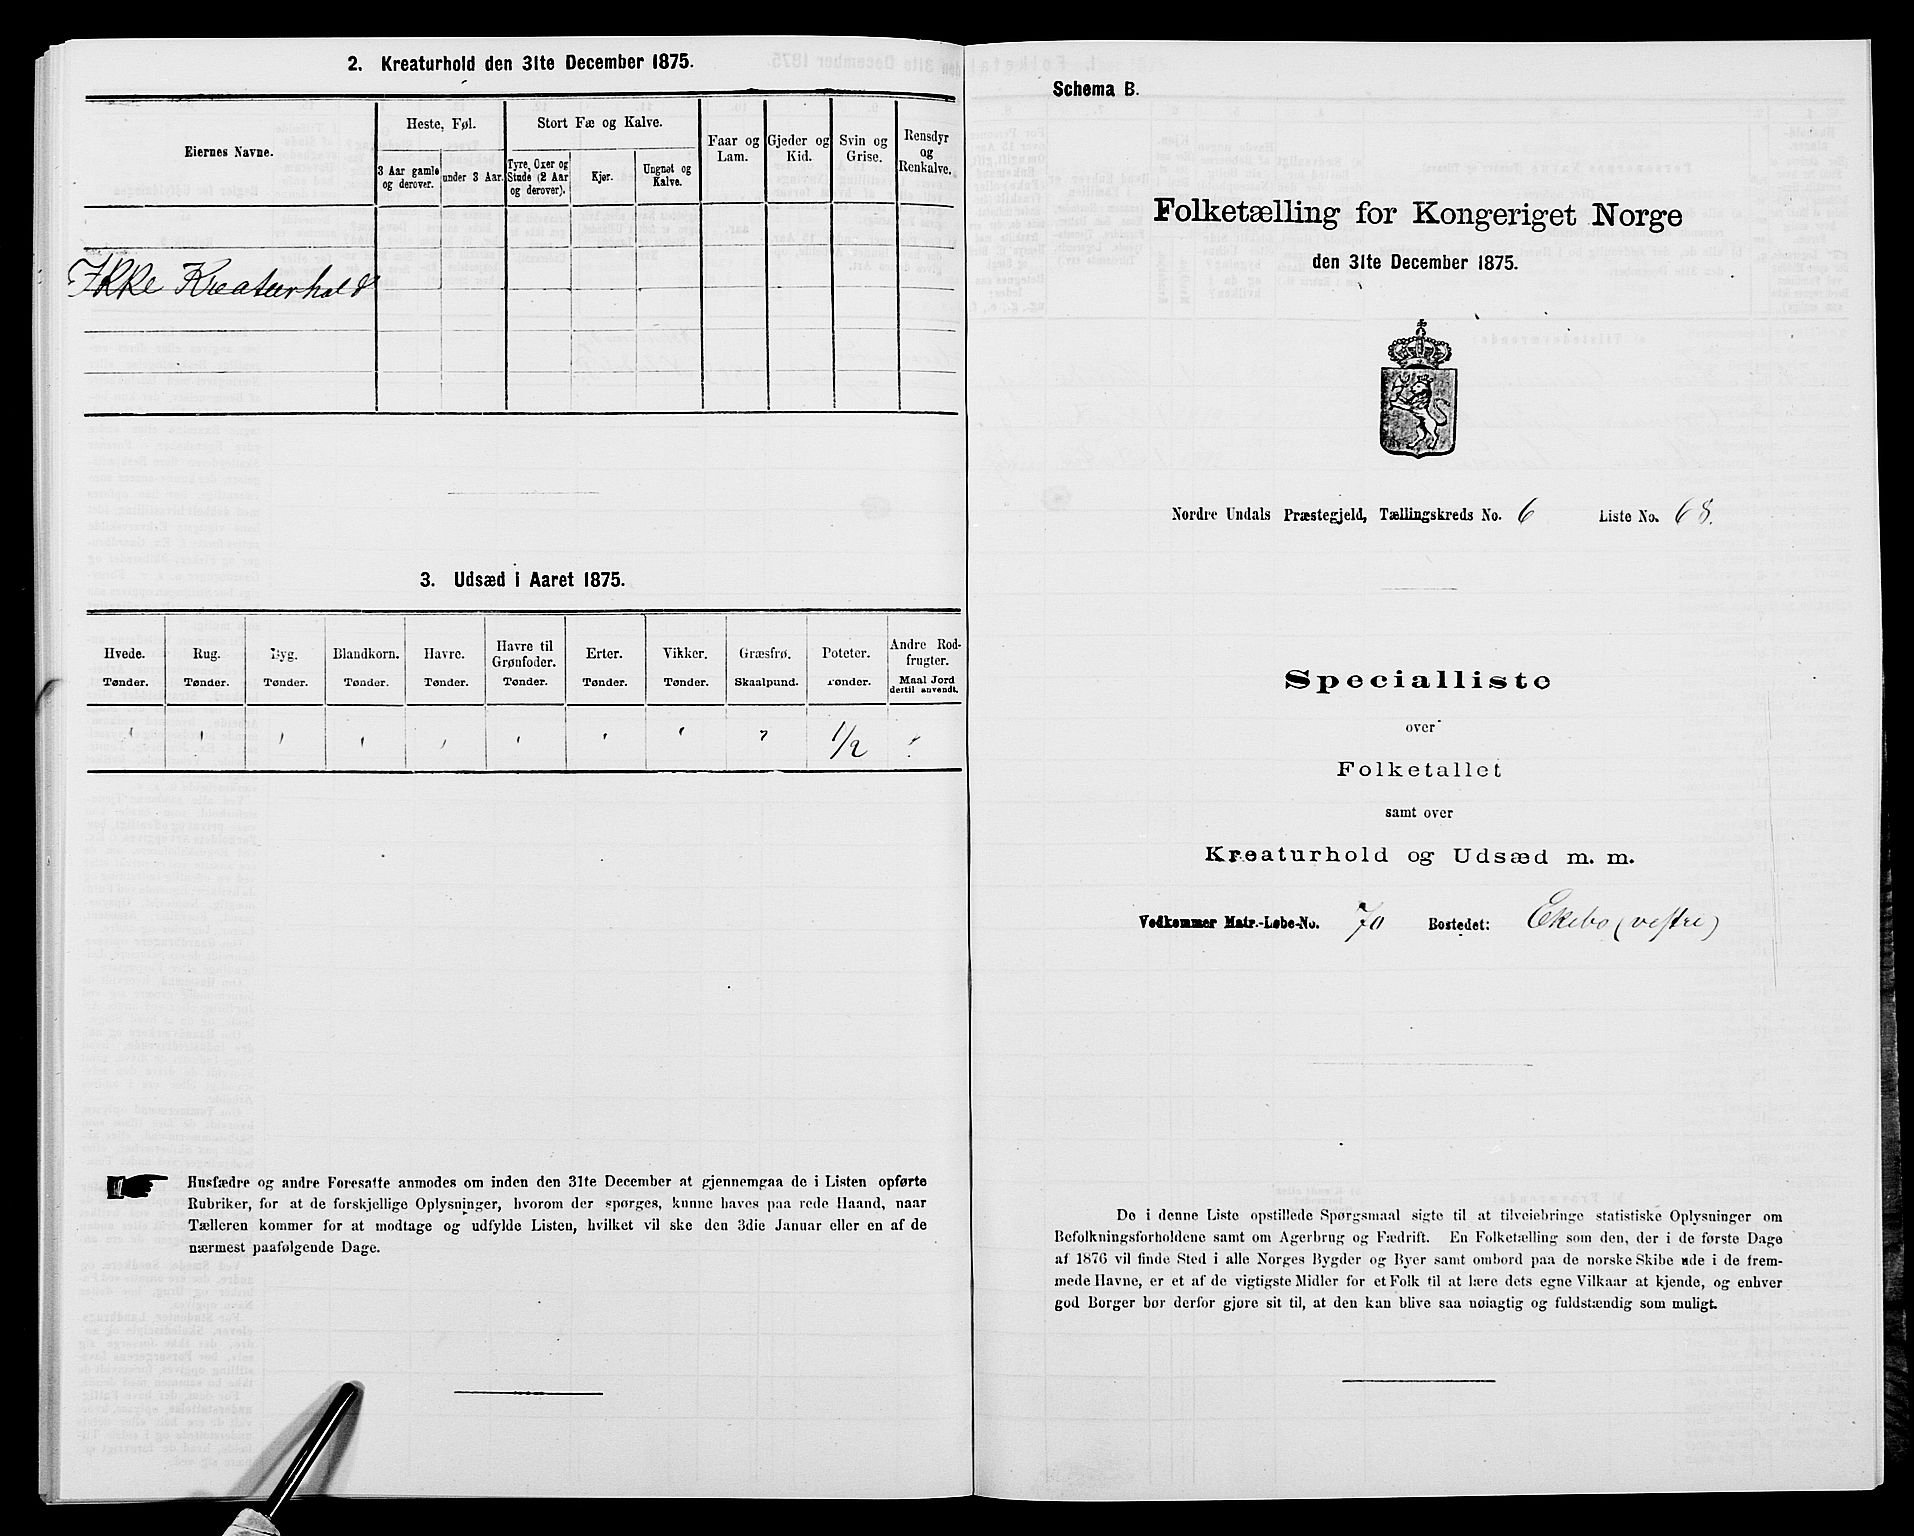 2. Kreaturhold den 31te December 1875.
Eiernes Navne.
Heste, Føl.
3 Aar gamle og derover.
under 3 Aar.
Stort Fæ og Kalve.
Tyre, Oxer og Stude (2 Aar og derover).
Kjør.
Ungnøt og Kalve.
Faar og Lam.
Gjeder og Kid.
Svin og Grise.
Rensdyr og Renkalve.
Ikke Kreaturhold
3. Udsæd i Aaret 1875.
Hvede. Rug. Byg. Blandkorn. Havre. Havre til Grønfoder. Erter. Vikker. Græsfrø. Poteter. Andre Rodfrugter.
Tønder. Tønder. Tønder. Tønder. Tønder. Tønder. Tønder. Tønder. Skaalpund. Tønder. Maal Jord dertil anvendt.
" " " " " " " " " 1/2 "
Husfædre og andre Foresatte anmodes om inden den 31te December at gjennemgaa de i Listen opførte
Rubriker, for at de forskjellige Oplysninger, hvorom der spørges, kunne haves paa rede Haand, naar
Tælleren kommer for at modtage og udfylde Listen, hvilket vil ske den 3die Januar eller en af de
nærmest paafølgende Dage.
Schema B.
Folketælling for Kongeriget Norge
den 31te December 1875.
Nordre Undals Præstegjeld, Tællingskreds No. 6 Liste No. 68.
Specialliste
over
Folketallet
samt over
Kreaturhold og Udsæd m. m.
Vedkommer Matr.-Løbe-No. 70 Bostedet: Ekebo (vestre)
De i denne Liste opstillede Spørgsmaal sigte til at tilveiebringe statistiske Oplysninger om
Befolkningsforholdene samt om Agerbrug og Fædrift. En Folketælling som den, der i de første Dage
af 1876 vil finde Sted i alle Norges Bygder og Byer samt ombord paa de norske Skibe ude i de frem-
mede Havne, er et af de vigtigste Midler for et Folk til at lære dets egne Vilkaar at kjende, og enhver
god Borger bør derfor gjøre sit til, at den kan blive saa nøiagtig og fuldstændig som muligt.